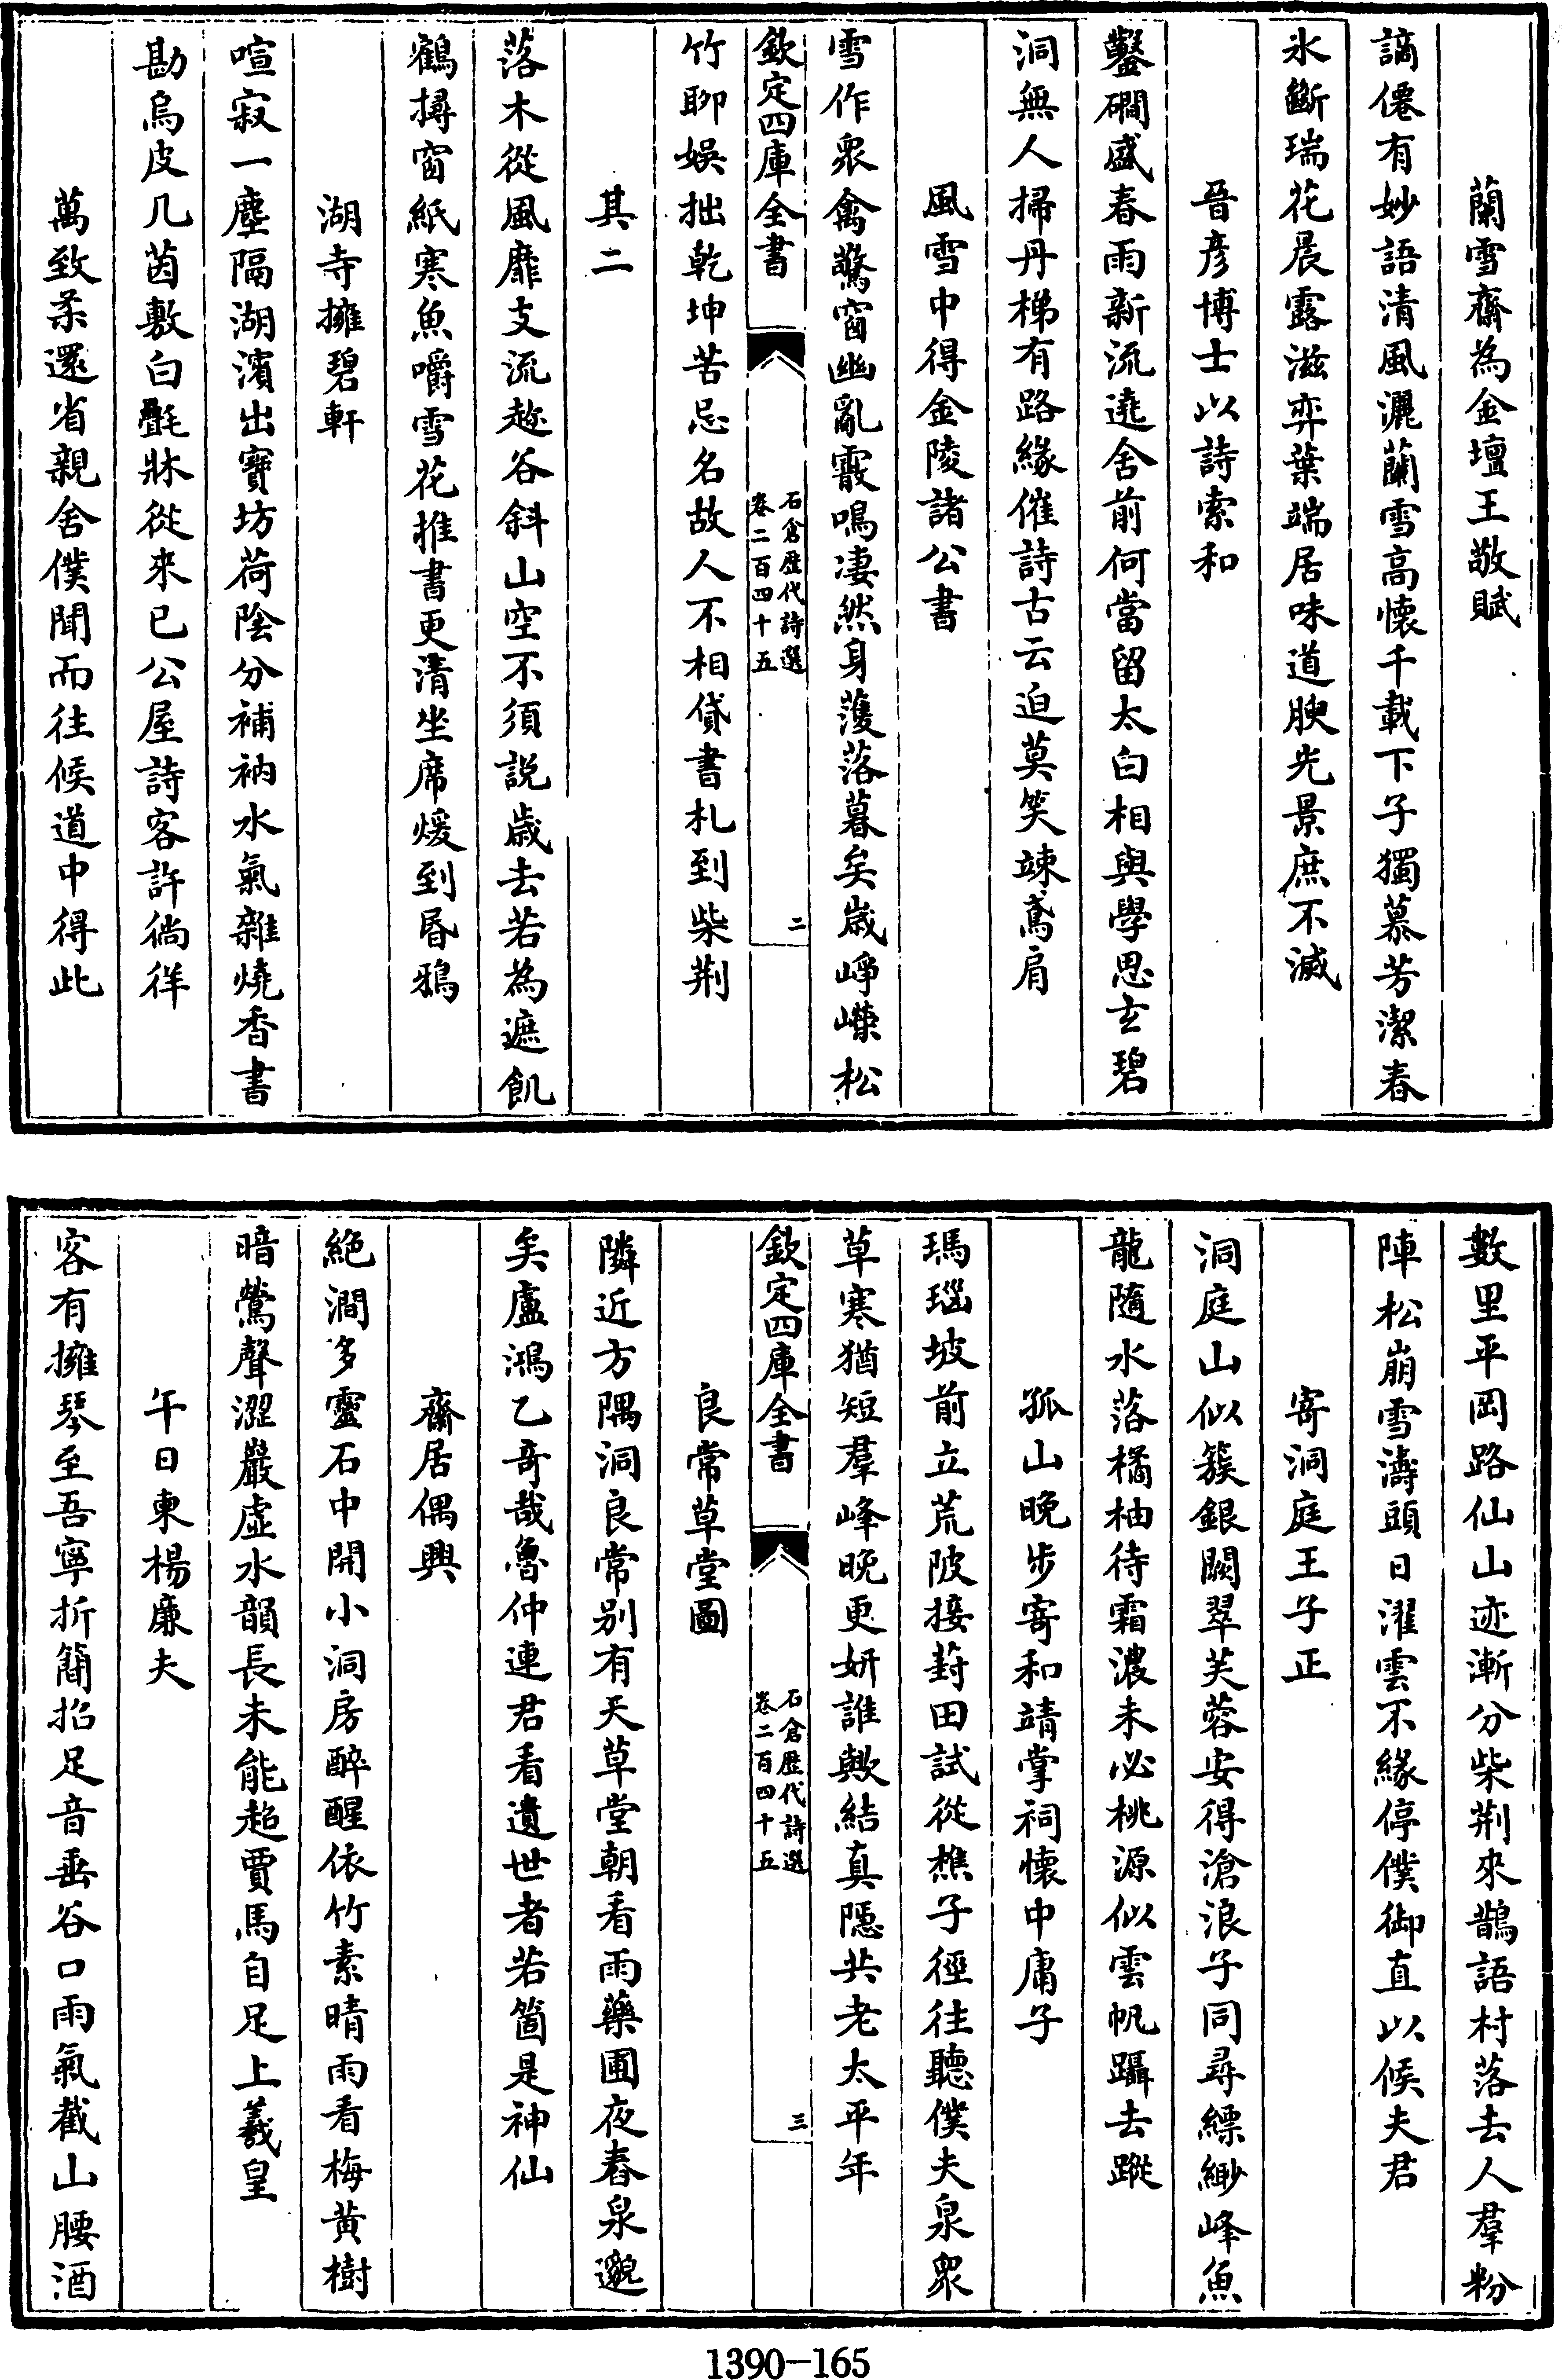 蘭雪齋為金壇王敬賦
謫僊有妙語清風灑蘭雪高懷千載下子獨慕芳潔春
氷斷瑞花晨露滋弈葉端居味道腴光景庶不滅
晉彦博士以詩索和
鑿磵盛春雨新流遶舍前何當留太白相與學思玄碧
洞無人掃丹梯有路緣催詩古云迫莫笑竦鳶肩
風雪中得金陵諸公書
雪作衆禽驚窗幽亂霰鳴凄然身濩落暮矣歳崢嶸松
欽定四庫全書
石倉歴代詩選
卷二百四十五
二
竹聊娯拙乾坤苦忌名故人不相貸書札到柴荆
其二
落木從風靡支流趂谷斜山空不須説歳去若為遮飢
鶴撏窗紙寒魚嚼雪花推書更清坐席煖到昏鴉
湖寺擁碧軒
喧寂一塵隔湖濱出寶坊荷陰分補衲水氣雜燒香書
勘烏皮几茵敷白氎牀從來已公屋詩客許徜徉
萬致柔還省親舍僕聞而往候道中得此
數里平岡路仙山迹漸分柴荆來鵲語村落去人羣粉
陣松崩雪濤頭日濯雲不緣停僕御直以候夫君
寄洞庭王子正
洞庭山似簇銀闕翠芙蓉安得滄浪子同尋縹緲峰魚
龍隨水落橘柚待霜濃未必桃源似雲帆躡去蹤
孤山晩步寄和靖掌祠懷中庸子
瑪瑙坡前立荒陂接葑田試從樵子徑往聽僕夫泉衆
草寒猶短羣峰晩更妍誰歟結真隱共老太平年
欽定四庫全書
石倉歴代詩選
卷二百四十五
三
良常草堂圖
隣近方隅洞良常别有天草堂朝看雨藥圃夜舂泉邈
矣盧鴻乙竒哉魯仲連君看遺世者若箇是神仙
齋居偶興
絶澗多靈石中開小洞房醉醒依竹素晴雨看梅黄樹
暗鶯聲澀巖虚水韻長未能超賈馬自足上羲皇
午日柬楊廉夫
客有擁琴至吾寧折簡招足音垂谷口雨氣截山腰酒
1390—165